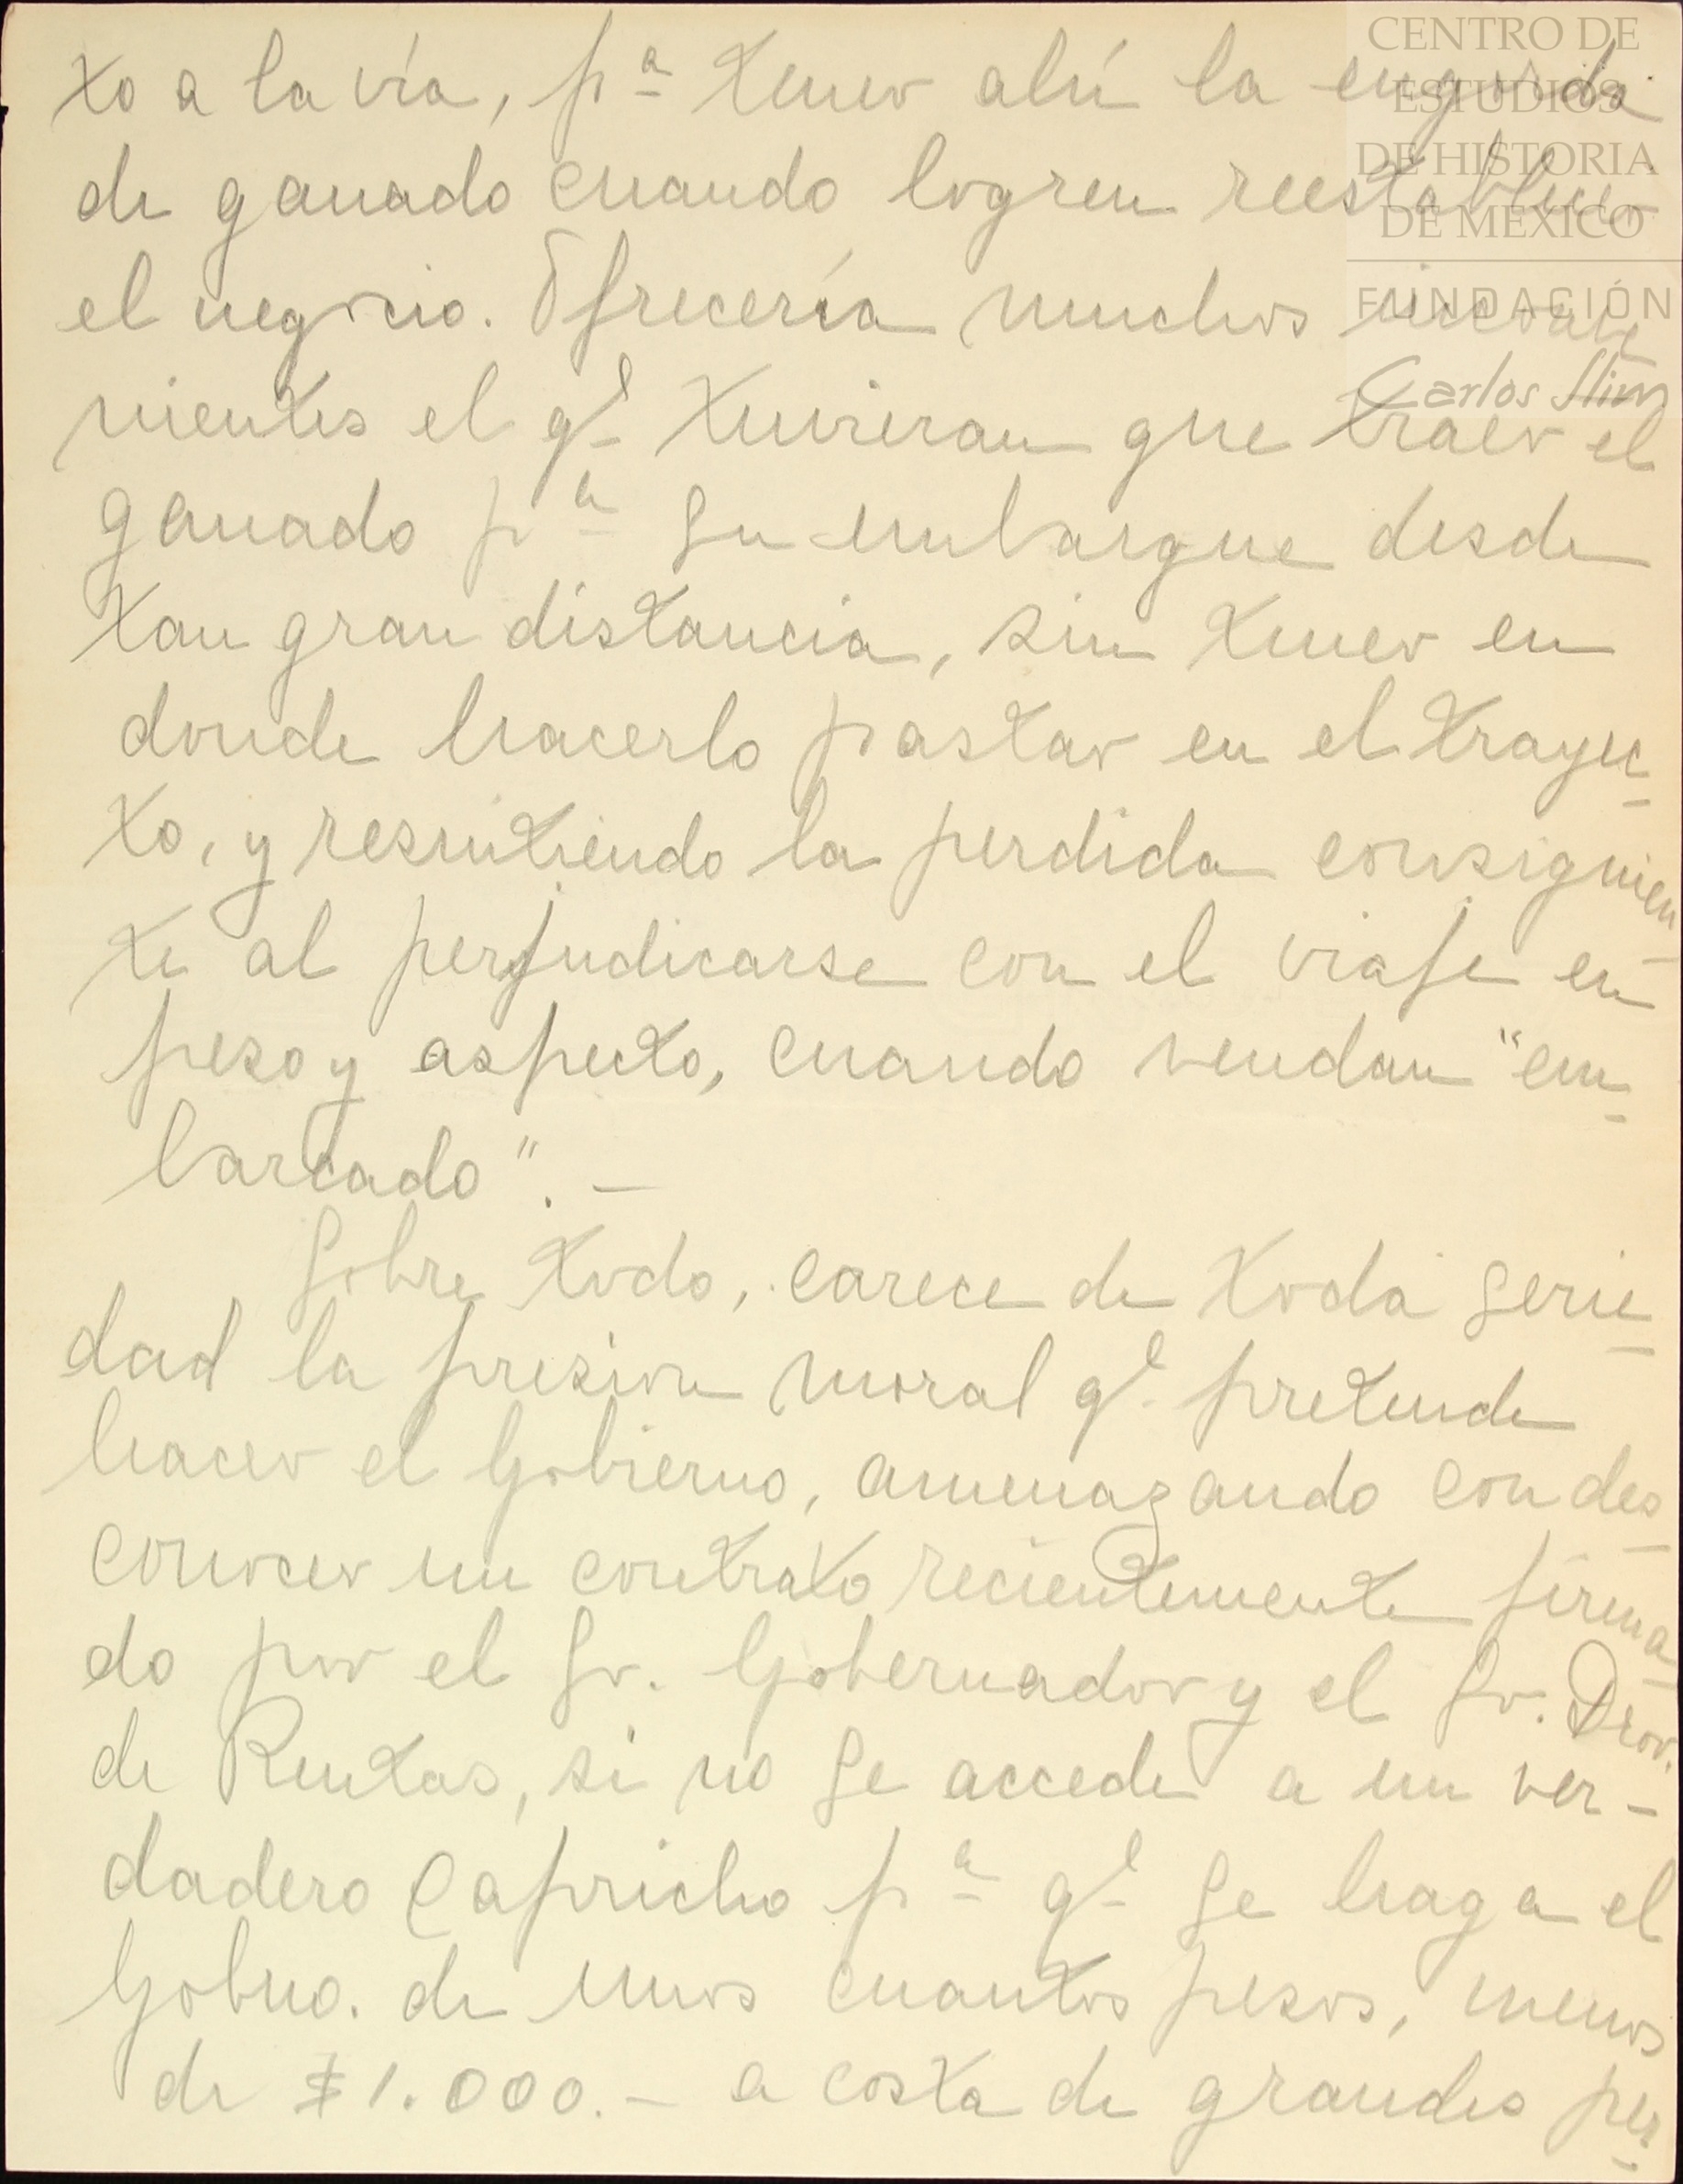 CENTRO DE
ESTUDIOS
DE HISTORIA
DE MEXICO
FUNDACIÓN
Carlos Slim
to a la vía, pª tener ahí la engorda
de ganado cuando logren reestablecer
el negocio. Ofrecería muchos inconve
nientes el qe tuvieran que traer el
ganado pª su embarque desde
tan gran distancia, sin tener en
donde hacerlo pastar en el trayec-
to, y resintiendo la perdida consiguien-
te al perjudicarse con el viaje en
peso y aspecto, cuando vendan "em-
barcado". —
Sobre todo, carece de toda serie-
dad la presion moral qe. pretende
hacer el Gobierno, amenazando con des-
conocer un contrato recientemente firma-
do por el Sr. Gobernador y el Sr. Dror.
de Rentas, si no se accede a un ver-
dadero capricho pª qe se haga el
Gobno. de unos cuantos pesos, menos
de $1.000. — a costa de grandes per-